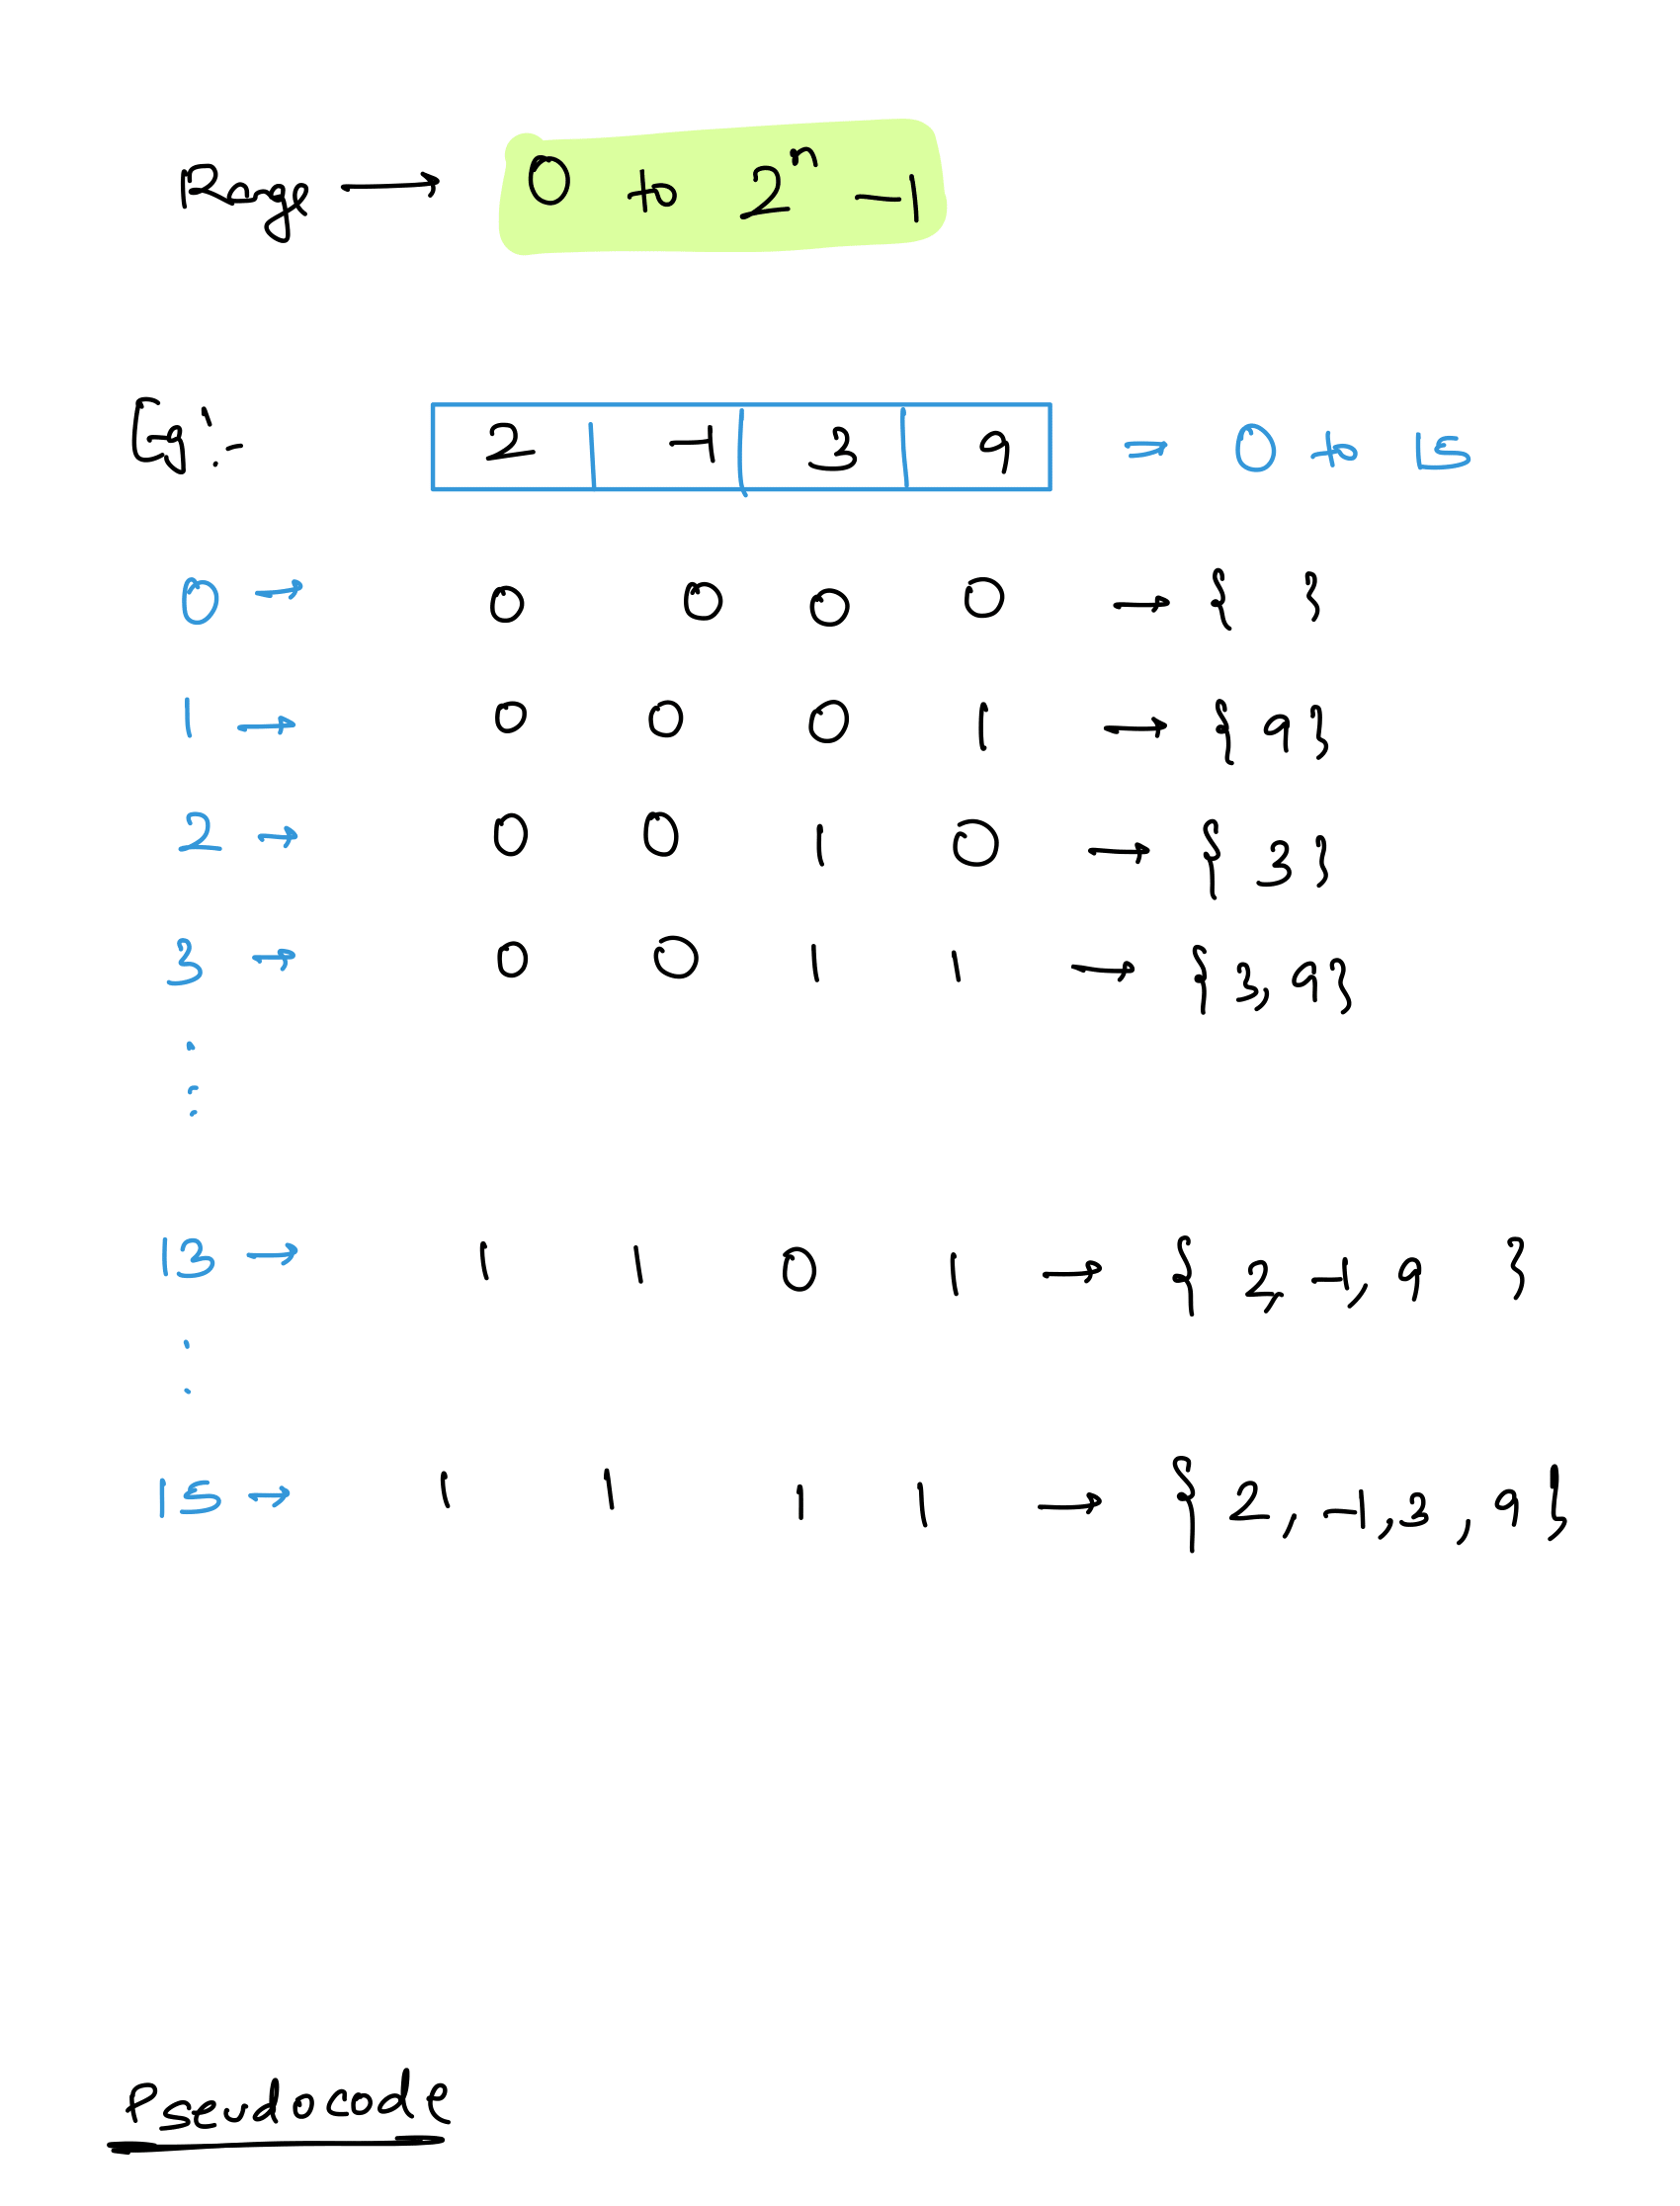 Range → 0 to 2ⁿ - 1
Eg:- 2 -1 3 9 ⇒ 0 to 15
0 → 0 0 0 0 → { }
1 → 0 0 0 1 → { 9}
2 → 0 0 1 0 → { 3}
3 → 0 0 1 1 → {3, 9}
13 → 1 1 0 1 → { 2, -1, 9 }
15 → 1 1 1 1 → { 2, -1, 3, 9}
Pseudocode